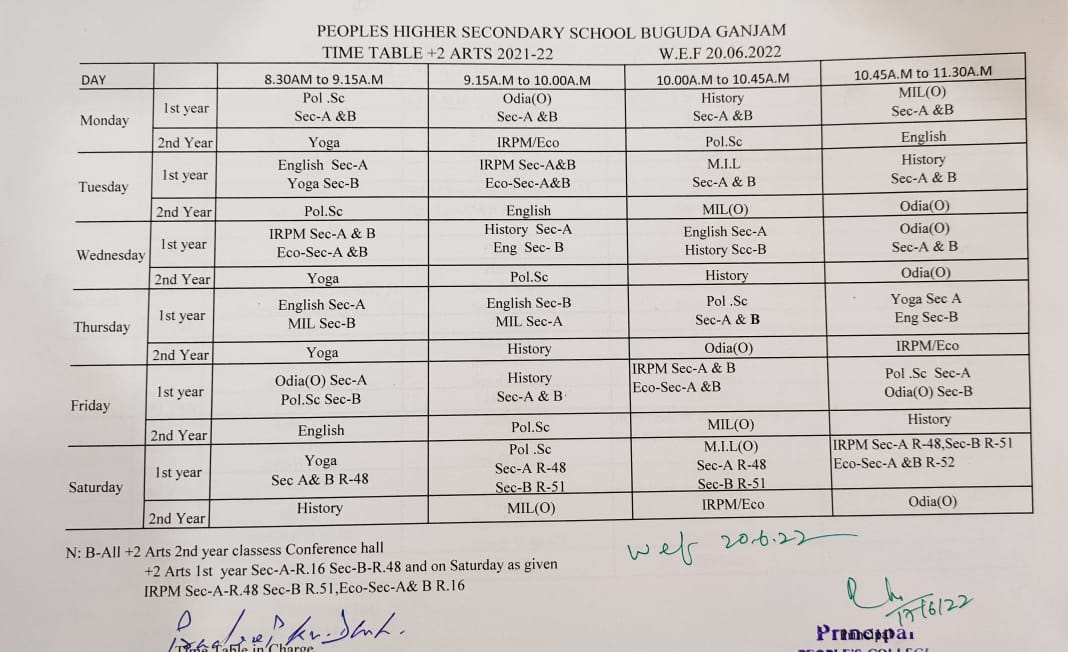 PEOPLES HIGHER SECONDARY SCHOOL BUGUDA GANJAM
TIME TABLE +2 ARTS 2021-22 W.E.F 20.06.2022
DAY 8.30AM to 9.15A.M 9.15A.M to 10.00A.M 10.00A.M to 10.45A.M 10.45A.M to 11.30A.M
Monday
1st year
Pol .Sc Odia(O) History MIL(O)
Sec-A &B Sec-A &B Sec-A &B Sec-A &B
2nd Year Yoga IRPM/Eco Pol.Sc English
Tuesday
1st year
English Sec-A IRPM Sec-A&B M.I.L History
Yoga Sec-B Eco-Sec-A&B Sec-A & B Sec-A & B
2nd Year Pol.Sc English MIL(O) Odia(O)
Wednesday
1st year
IRPM Sec-A & B History Sec-A English Sec-A Odia(O)
Eco-Sec-A &B Eng Sec- B History Scc-B Sec-A & B
2nd Year Yoga Pol.Sc History Odia(O)
Thursday
1st year
English Sec-A English Sec-B Pol .Sc Yoga Sec A
MIL Sec-B MIL Sec-A Sec-A & B Eng Sec-B
2nd Year Yoga History Odia(O) IRPM/Eco
Friday
1st year
Odia(O) Sec-A History IRPM Sec-A & B Pol .Sc Sec-A
Pol.Sc Sec-B Sec-A & B Eco-Sec-A &B Odia(O) Sec-B
2nd Year English Pol.Sc MIL(O) History
Saturday
1st year
Yoga Pol .Sc M.I.L(O) IRPM Sec-A R-48,Sec-B R-51
Sec A& B R-48 Sec-A R-48 Sec-A R-48 Eco-Sec-A &B R-52
Sec-B R-51 Sec-B R-51
2nd Year History MIL(O) IRPM/Eco Odia(O)
N: B-All +2 Arts 2nd year classess Conference hall
+2 Arts 1st year Sec-A-R.16 Sec-B-R.48 and on Saturday as given
IRPM Sec-A-R.48 Sec-B R.51,Eco-Sec-A& B R.16
wef 20.6.22
17/6/22
Principal
Time Table in Charge
PEOPLE'S COLLEGE